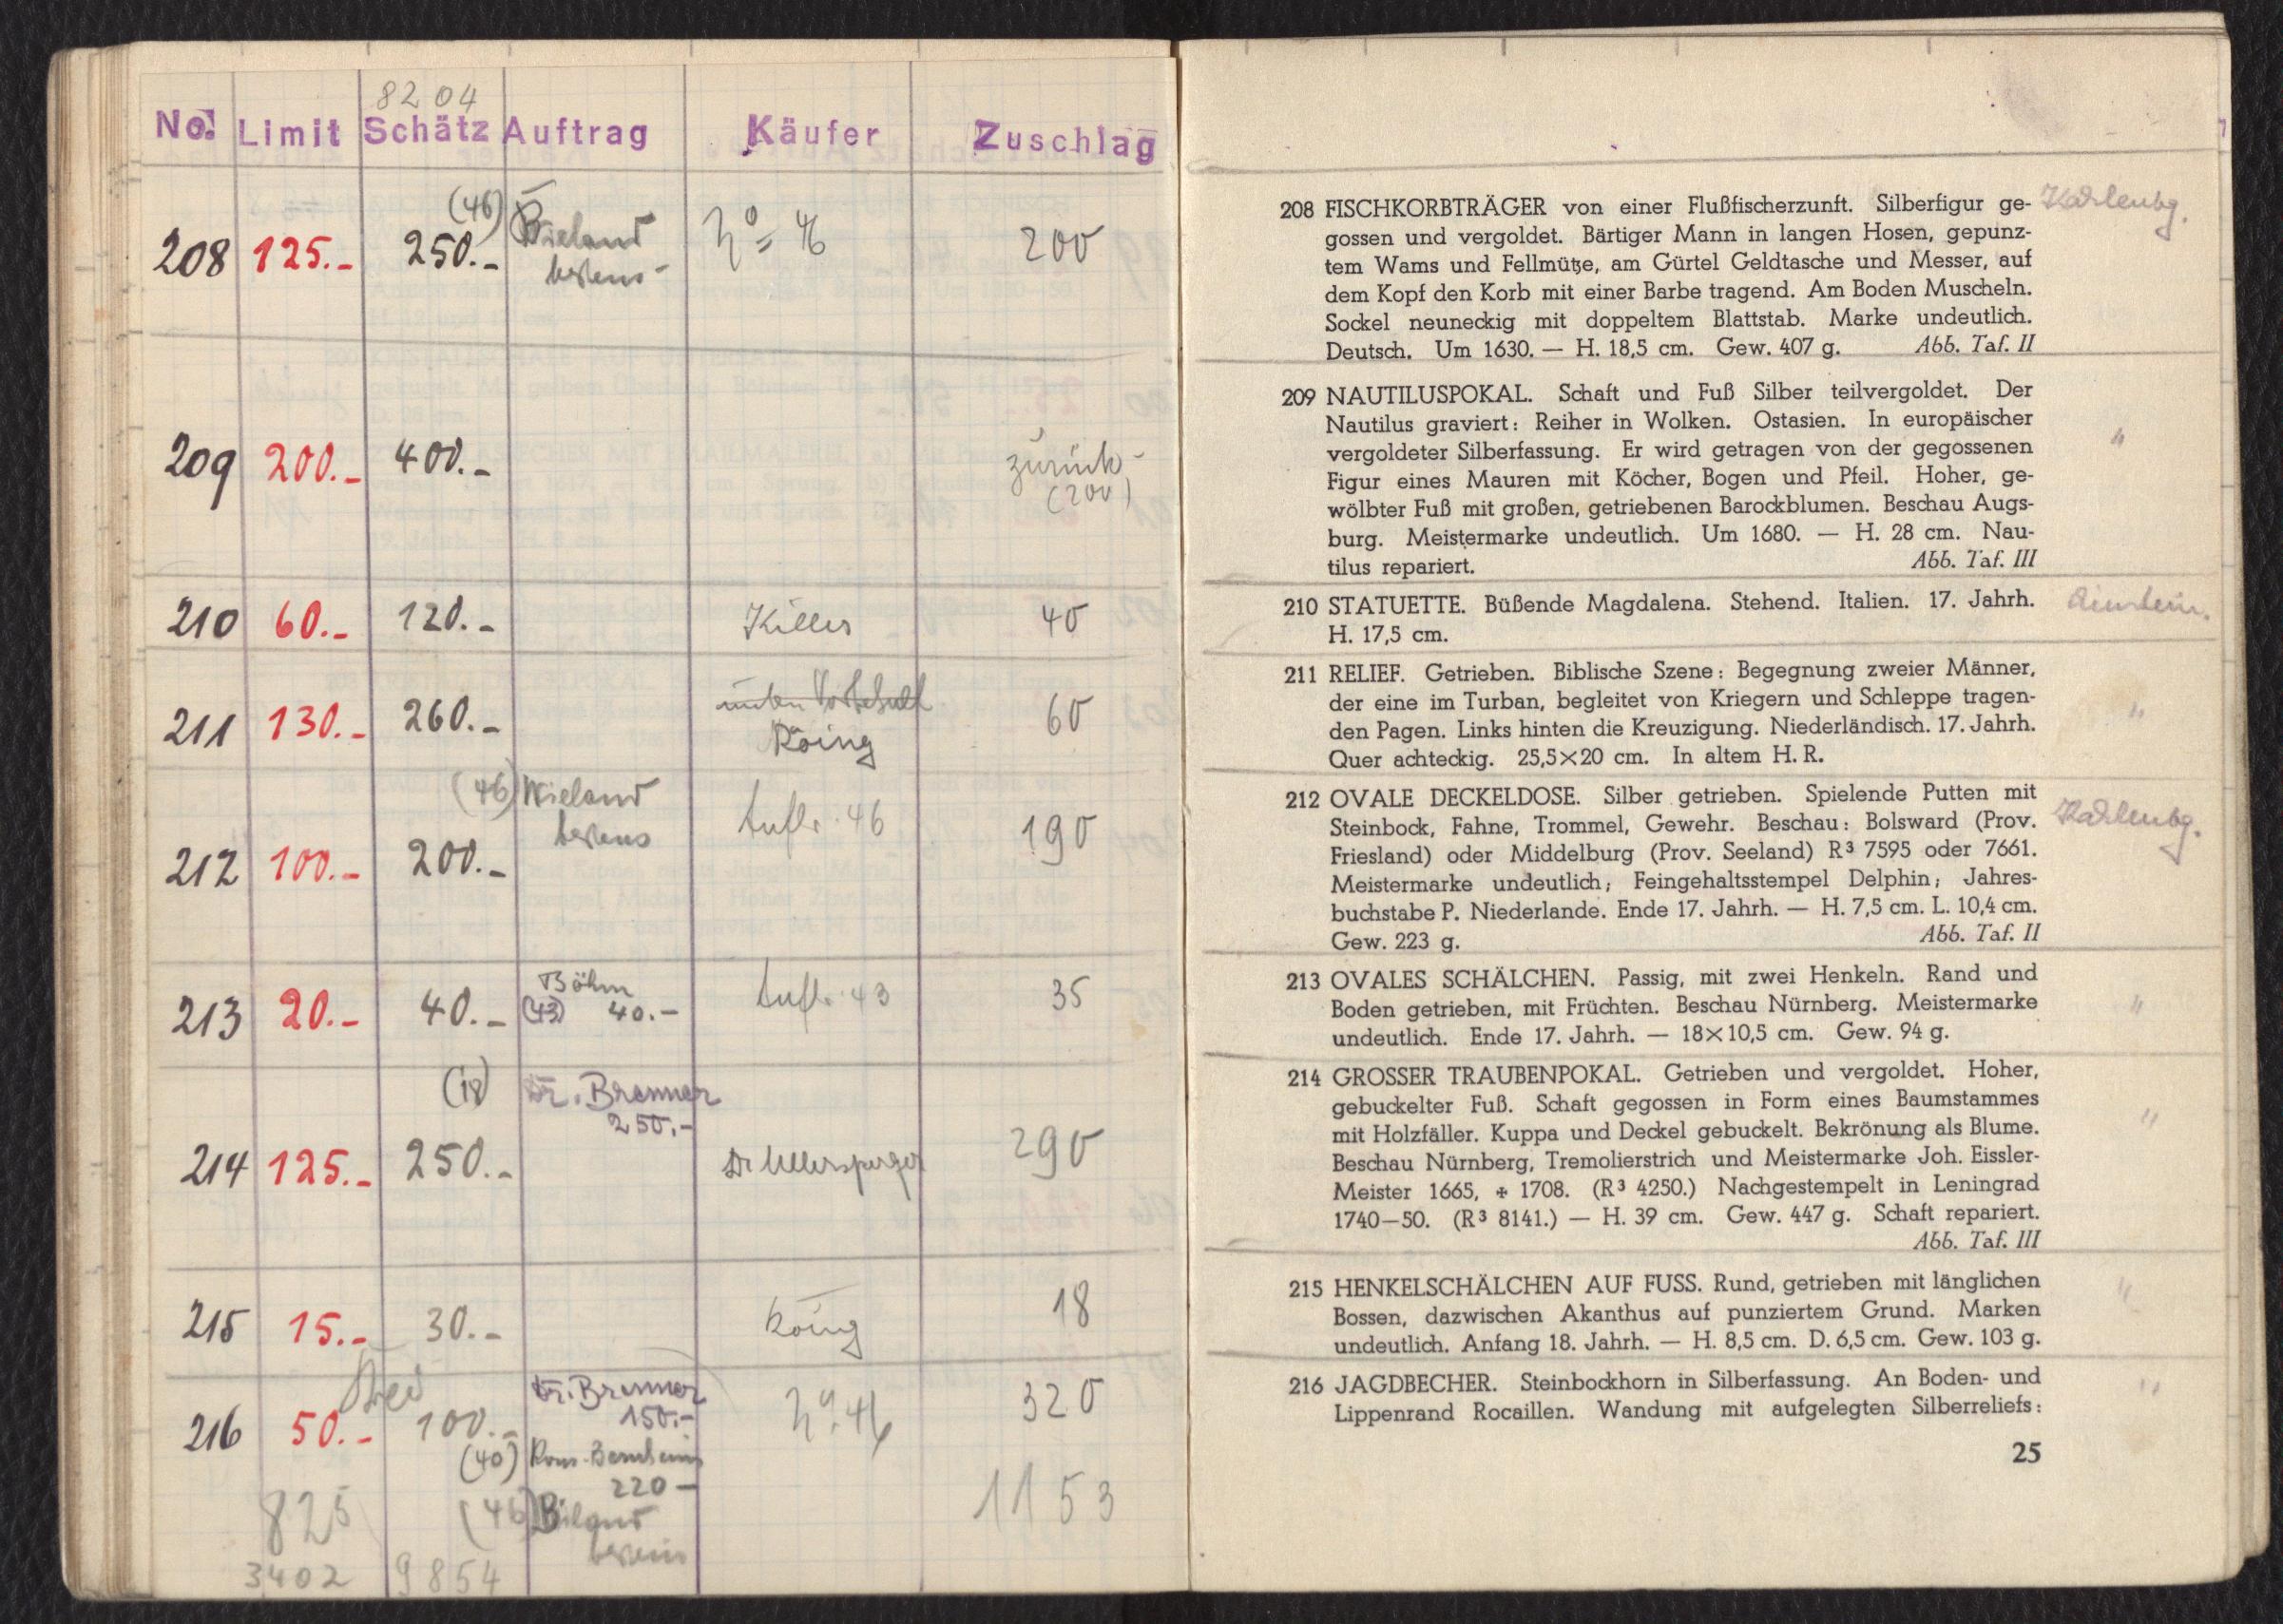 8204
No. Limit Schätz Auftrag Käufer Zuschlag
208 125.- 250.- (46) Wieland bestens No 46 200
209 200.- 400.- zurück (200)
210 60.- 120.- Killer 40
211 130.- 260.- unter Vorbehalt König 60
212 100.- 200.- (46) Wieland bestens Auftr. 46 190
213 20.- 40.- Böhm (43) 40.- Auftr. 43 35
214 125.- 250.- (18) Dr. Brenner 250.- 290
215 15.- 30.- König 18
216 50.- 100.- Dr. Brenner 150.- No. 46 320
(40) 220-
(46) bestens
825 1153
3402 9854
208 FISCHKORBTRÄGER von einer Flußfischerzunft. Silberfigur ge-
gossen und vergoldet. Bärtiger Mann in langen Hosen, gepunz-
tem Wams und Fellmütze, am Gürtel Geldtasche und Messer, auf
dem Kopf den Korb mit einer Barbe tragend. Am Boden Muscheln.
Sockel neuneckig mit doppeltem Blattstab. Marke undeutlich.
Deutsch. Um 1630. — H. 18,5 cm. Gew. 407 g. Abb. Taf. II
209 NAUTILUSPOKAL. Schaft und Fuß Silber teilvergoldet. Der
Nautilus graviert: Reiher in Wolken. Ostasien. In europäischer
vergoldeter Silberfassung. Er wird getragen von der gegossenen
Figur eines Mauren mit Köcher, Bogen und Pfeil. Hoher, ge-
wölbter Fuß mit großen, getriebenen Barockblumen. Beschau Augs-
burg. Meistermarke undeutlich. Um 1680. — H. 28 cm. Nau-
tilus repariert. Abb. Taf. III
"
210 STATUETTE. Büßende Magdalena. Stehend. Italien. 17. Jahrh.
H. 17,5 cm.
211 RELIEF. Getrieben. Biblische Szene: Begegnung zweier Männer,
der eine im Turban, begleitet von Kriegern und Schleppe tragen-
den Pagen. Links hinten die Kreuzigung. Niederländisch. 17. Jahrh.
Quer achteckig. 25,5×20 cm. In altem H. R.
"
212 OVALE DECKELDOSE. Silber getrieben. Spielende Putten mit
Steinbock, Fahne, Trommel, Gewehr. Beschau: Bolsward (Prov.
Friesland) oder Middelburg (Prov. Seeland) R³ 7595 oder 7661.
Meistermarke undeutlich; Feingehaltsstempel Delphin; Jahres-
buchstabe P. Niederlande. Ende 17. Jahrh. — H. 7,5 cm. L. 10,4 cm.
Gew. 223 g. Abb. Taf. II
213 OVALES SCHÄLCHEN. Passig, mit zwei Henkeln. Rand und
Boden getrieben, mit Früchten. Beschau Nürnberg. Meistermarke
undeutlich. Ende 17. Jahrh. — 18×10,5 cm. Gew. 94 g.
"
214 GROSSER TRAUBENPOKAL. Getrieben und vergoldet. Hoher,
gebuckelter Fuß. Schaft gegossen in Form eines Baumstammes
mit Holzfäller. Kuppa und Deckel gebuckelt. Bekrönung als Blume.
Beschau Nürnberg, Tremolierstrich und Meistermarke Joh. Eissler-
Meister 1665, ✠ 1708. (R³ 4250.) Nachgestempelt in Leningrad
1740—50. (R³ 8141.) — H. 39 cm. Gew. 447 g. Schaft repariert.
Abb. Taf. III
"
215 HENKELSCHÄLCHEN AUF FUSS. Rund, getrieben mit länglichen
Bossen, dazwischen Akanthus auf punziertem Grund. Marken
undeutlich. Anfang 18. Jahrh. — H. 8,5 cm. D. 6,5 cm. Gew. 103 g.
"
216 JAGDBECHER. Steinbockhorn in Silberfassung. An Boden- und
Lippenrand Rocaillen. Wandung mit aufgelegten Silberreliefs:
"
25